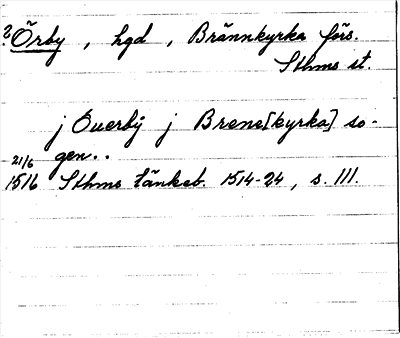 ? Örby , hgd , Brännkyrka förs.
Sthms st.
j Ouerbÿ j Brene[kyrka] so-
gen..
21/6
1516 Sthms tänkeb. 1514-24, s. 111.